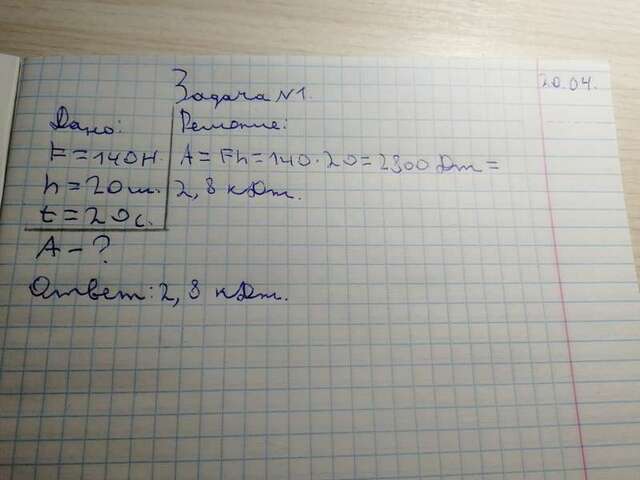 20.04.
Задача №1.
Дано:
F = 140Н.
h = 20 м.
t = 20с.
A - ?
Решение:
A = Fh = 140 · 20 = 2800 Дж =
2,8 кДж.
Ответ: 2,8 кДж.